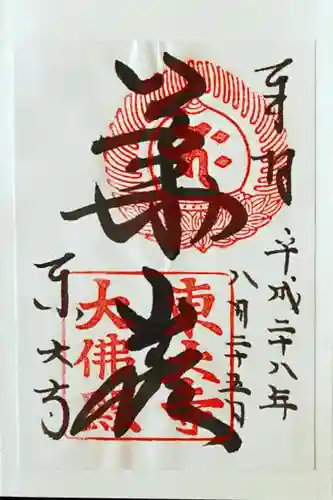 奉拝
平成二十八年
八月二十五日
華厳
東大寺
大佛殿
東大寺